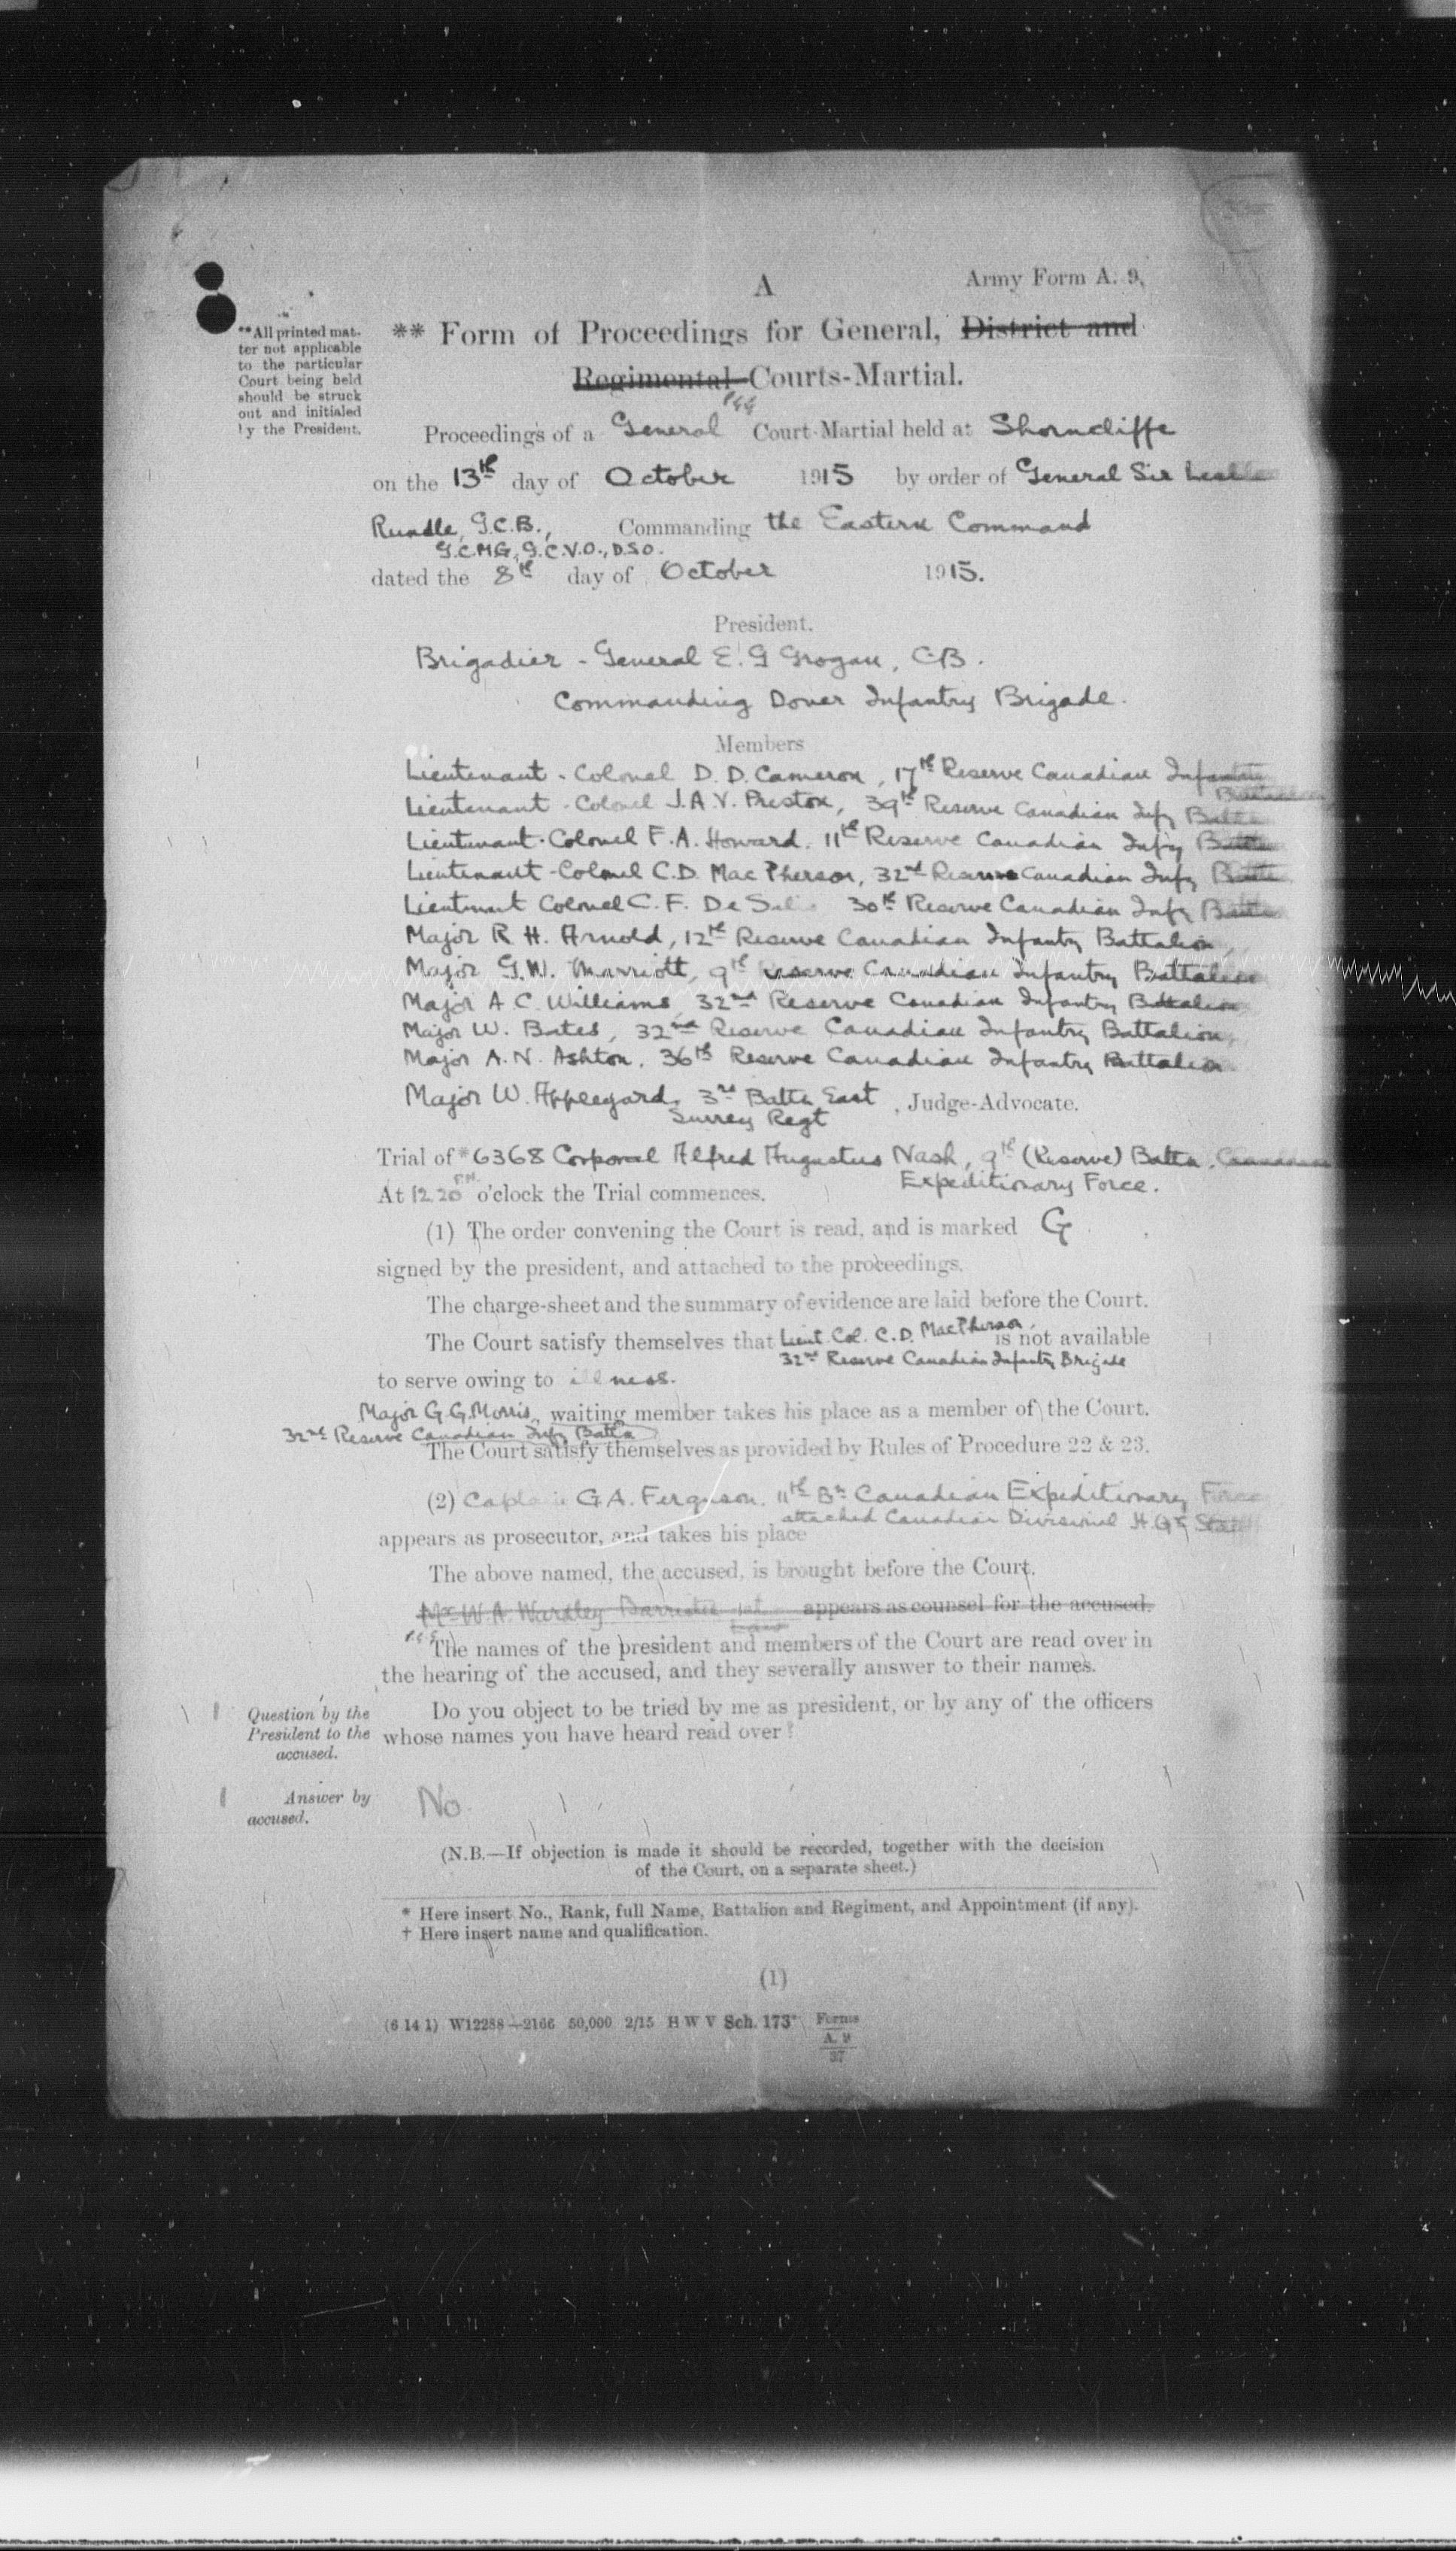 A
Army Form A. 9.
**All printed mat-
ter not applicable
to the particular
Court being held
should be struck
out and initialed
by the President.
** Form of Proceedings for General, District and
Regimental Courts-Martial.
Proceedings of a General Court-Martial held at Shorncliffe
on the 13th day of October 1915 by order of General Sir Leslie
Rundle, G.C.B., Commanding the Eastern Command
G.C.M.G., G.C.V.O., D.S.O.
dated the 8th day of October 1915.
President.
Brigadier - General E. G Grogan, C.B.
Commanding Dover Infantry Brigade.
Members
Lieutenant - Colonel D. D. Cameron, 17th Reserve Canadian Infantry
Battalion
Lieutenant - Colonel J.A.V. Preston, 39th Reserve Canadian Infy Battn
Lieutenant - Colonel F. A. Howard, 11th Reserve Canadian Infy Battn
Lieutenant - Colonel C.D. MacPherson, 32nd Reserve Canadian Infy Battn
Lieutenant Colonel C. F. De Salis 30th Reserve Canadian Infy Battn
Major R H. Arnold, 12th Reserve Canadian Infantry Battalion,
Major G.W. Marriott, 9th Reserve Canadian Infantry Battalion
Major A C. Williams, 32nd Reserve Canadian Infantry Battalion
Major W. Bates, 32nd Reserve Canadian Infantry Battalion,
Major A. N. Ashton, 36th Reserve Canadian Infantry Battalion
Major W. Applegard, 3rd Battn East , Judge-Advocate.
Surrey Regt
Trial of *6368 Corporal Alfred Augustus Nash, 9th (Reserve) Battn. Canadian
Expeditionary Force.
At 12.20 P.M. o'clock the Trial commences.
(1) The order convening the Court is read, and is marked G
signed by the president, and attached to the proceedings.
The charge-sheet and the summary of evidence are laid before the Court.
The Court satisfy themselves that Lieut. Col. C. D. MacPherson, is not available
32nd Reserve Canadian Infantry Brigade
to serve owing to illness.
Major G. G. Morris, waiting member takes his place as a member of the Court.
32nd Reserve Canadian Infy Battn
The Court satisfy themselves as provided by Rules of Procedure 22 & 23.
(2) Captain G. A. Ferguson, 11th Bn Canadian Expeditionary Force
attached Canadian Divisional H.Qrs Staff
appears as prosecutor, and takes his place
The above named, the accused, is brought before the Court.
Mr W. A. Wardley Barrister appears as counsel for the accused.
The names of the president and members of the Court are read over in
the hearing of the accused, and they severally answer to their names.
Question by the
President to the
accused.
Do you object to be tried by me as president, or by any of the officers
whose names you have heard read over?
Answer by
accused.
No.
(N.B.—If objection is made it should be recorded, together with the decision
of the Court, on a separate sheet.)
* Here insert No., Rank, full Name, Battalion and Regiment, and Appointment (if any).
† Here insert name and qualification.
(1)
(6 14 1) W12288—2166 50,000 2/15 H W V Sch. 173 Forms
A. 9
37